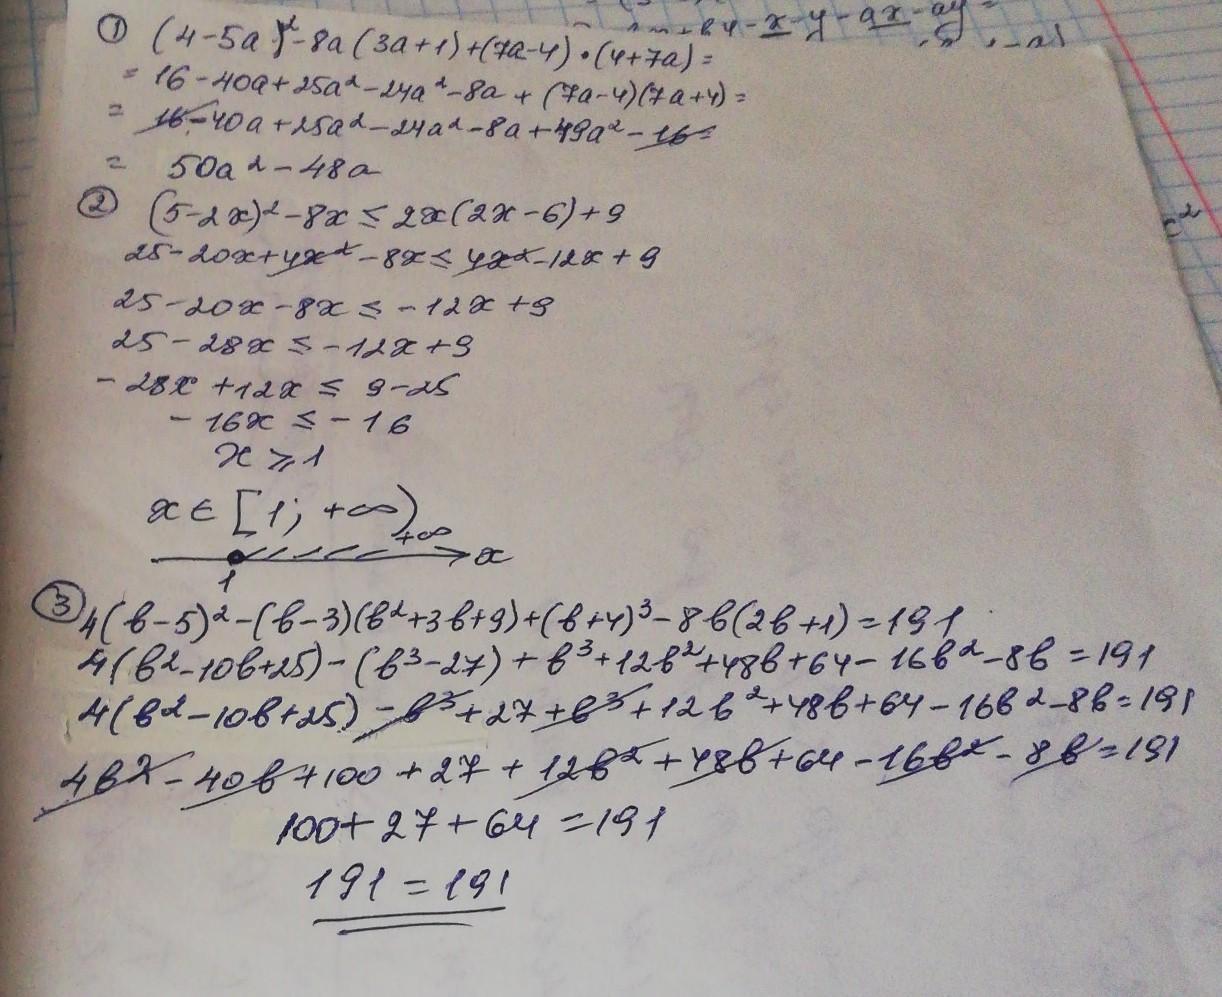 ① (4-5a)²-8a(3a+1)+(7a-4)·(4+7a)=
= 16-40a+25a²-24a²-8a+(7a-4)(7a+4)=
= 16-40a+25a²-24a²-8a+49a²-16=
= 50a²-48a
② (5-2x)²-8x≤2x(2x-6)+9
25-20x+4x²-8x≤4x²-12x+9
25-20x-8x≤-12x+9
25-28x≤-12x+9
-28x+12x≤9-25
-16x≤-16
x⩾1
x∈[1;+∞)
+∞
x
1
③ 4(b-5)²-(b-3)(b²+3b+9)+(b+4)³-8b(2b+1)=191
4(b²-10b+25)-(b³-27)+b³+12b²+48b+64-16b²-8b=191
4(b²-10b+25)-b³+27+b³+12b²+48b+64-16b²-8b=191
4b²-40b+100+27+12b²+48b+64-16b²-8b=191
100+27+64=191
191=191